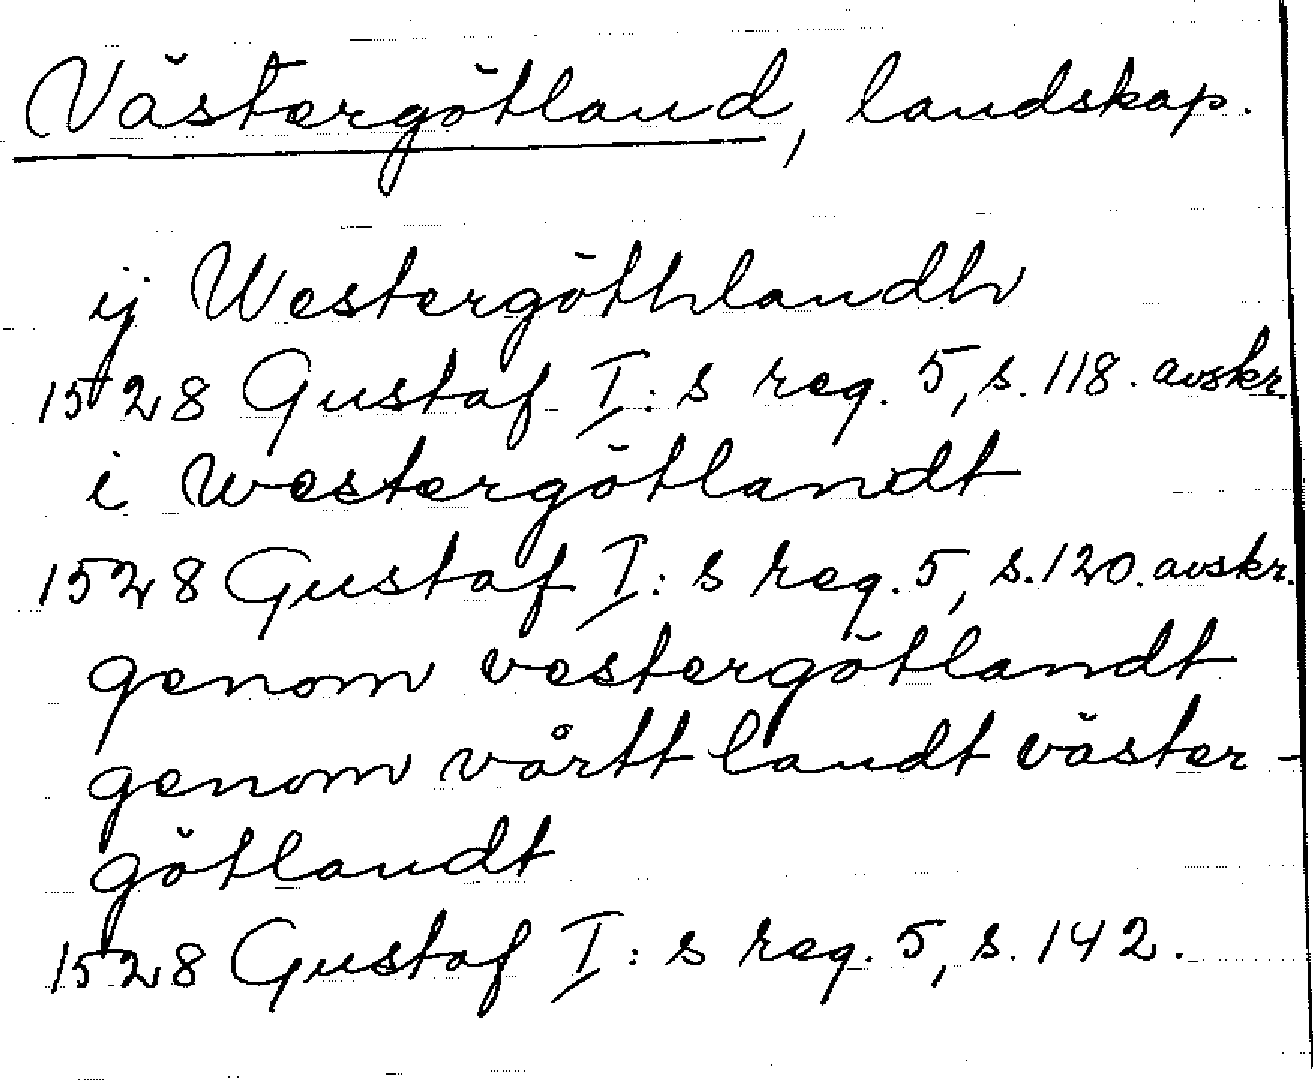 Västergötland, landskap.
ij Westergöthlandh
1528 Gustaf I:s reg. 5, s. 118. avskr.
i Westergötlandt
1528 Gustaf I:s reg. 5, s. 120. avskr.
genom vestergötlandt
genom vårtt landt väster-
götlandt
1528 Gustaf I:s reg. 5, s. 142.